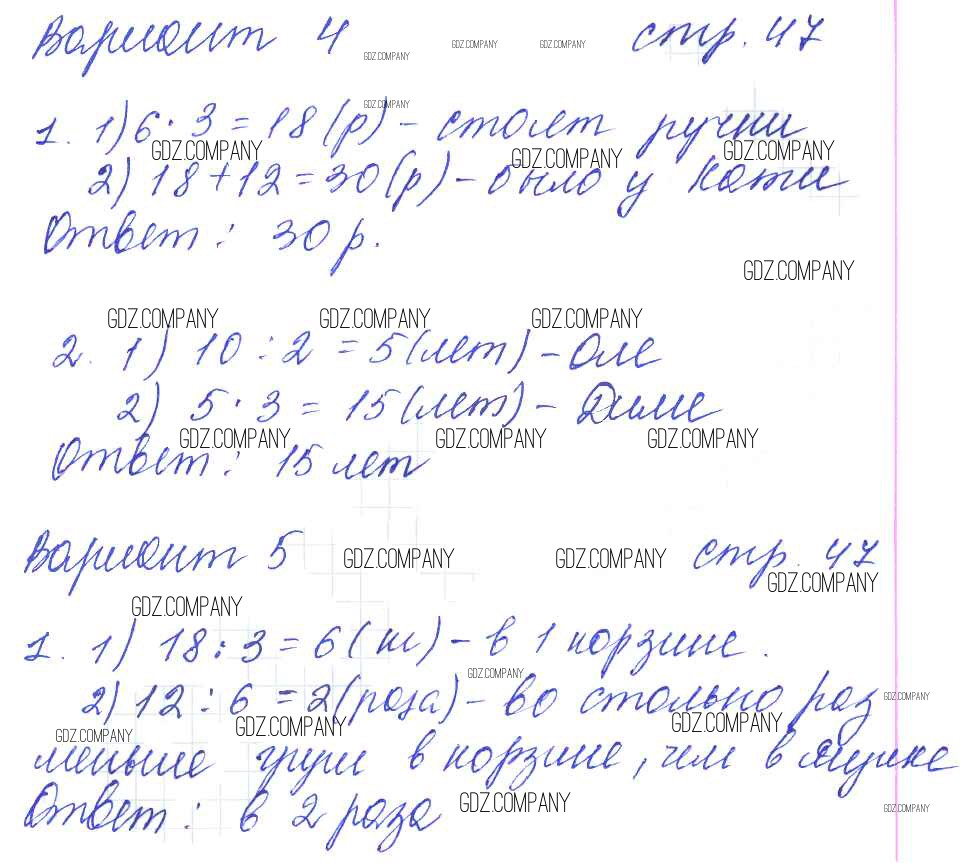 Вариант 4 стр. 47
GDZ.COMPANY GDZ.COMPANY GDZ.COMPANY
GDZ.COMPANY
1. 1) 6 · 3 = 18 (р) - стоят ручки
GDZ.COMPANY GDZ.COMPANY GDZ.COMPANY
2) 18 + 12 = 30 (р) - было у Кати
Ответ: 30 р.
GDZ.COMPANY
GDZ.COMPANY GDZ.COMPANY GDZ.COMPANY
2. 1) 10 : 2 = 5 (лет) - Оле
2) 5 · 3 = 15 (лет) - Диме
GDZ.COMPANY GDZ.COMPANY GDZ.COMPANY
Ответ: 15 лет
Вариант 5 GDZ.COMPANY GDZ.COMPANY стр. 47
GDZ.COMPANY
GDZ.COMPANY
1. 1) 18 : 3 = 6 (кг) - в 1 корзине.
GDZ.COMPANY
2) 12 : 6 = 2 (раза) - во столько раз
GDZ.COMPANY
GDZ.COMPANY GDZ.COMPANY GDZ.COMPANY
меньше груш в корзине, чем в ящике
Ответ: в 2 раза GDZ.COMPANY
GDZ.COMPANY